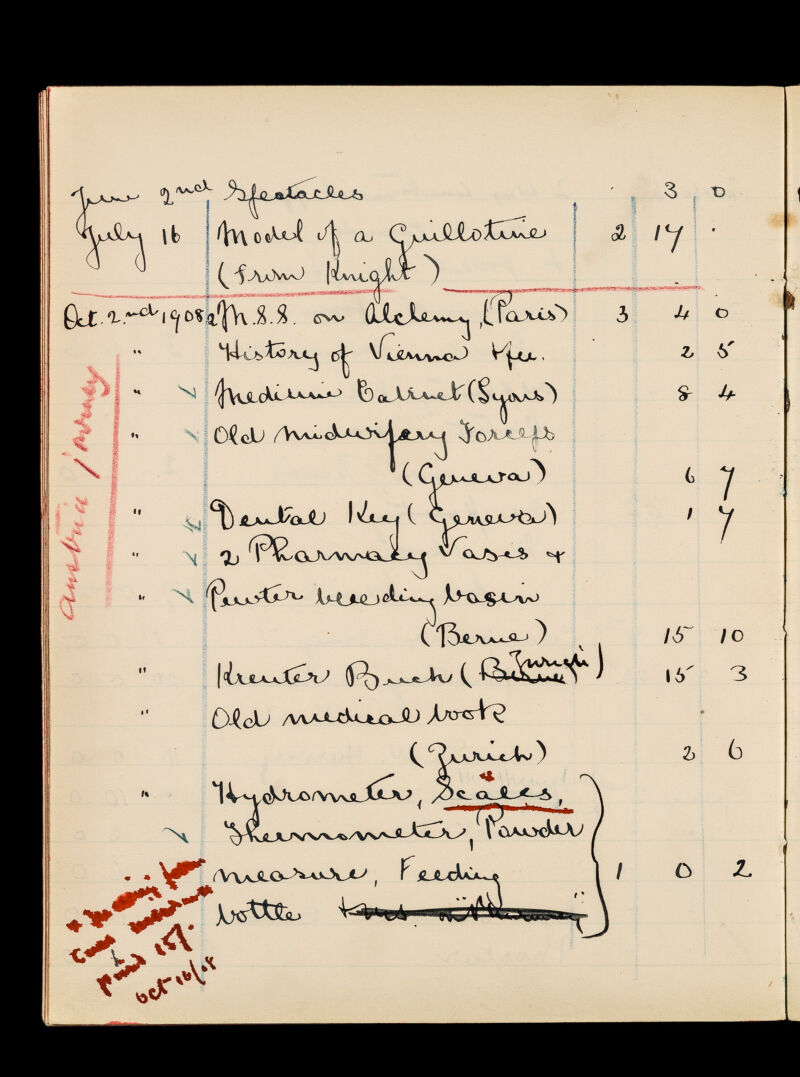 June 2nd Spectacles · 3 0
July 16 Model of a Guillotine 2 17 ·
(From Knight)
Oct. 2.nd 1908 2 M.S.S. on Alchemy, (Paris) 3 4 0
" History of Vienna 2 5
" Medicine Cabinet (Lyons) 8 4
" Old Midwifery Forceps
(Geneva) 6 7
" Dental Key (Geneva) 1 7
" 2 Pharmacy Vases +
" Pewter bleeding basin
(Berne) 15 10
" Kreuter Buch (Berne) Zurich) 15 3
" Old medical book
(Zurich) 2 6
" Hydrometer, Scales,
Thermometer, Powder
measure, Feeding 1 0 2
bottle
Austria journey
Oct 16/08